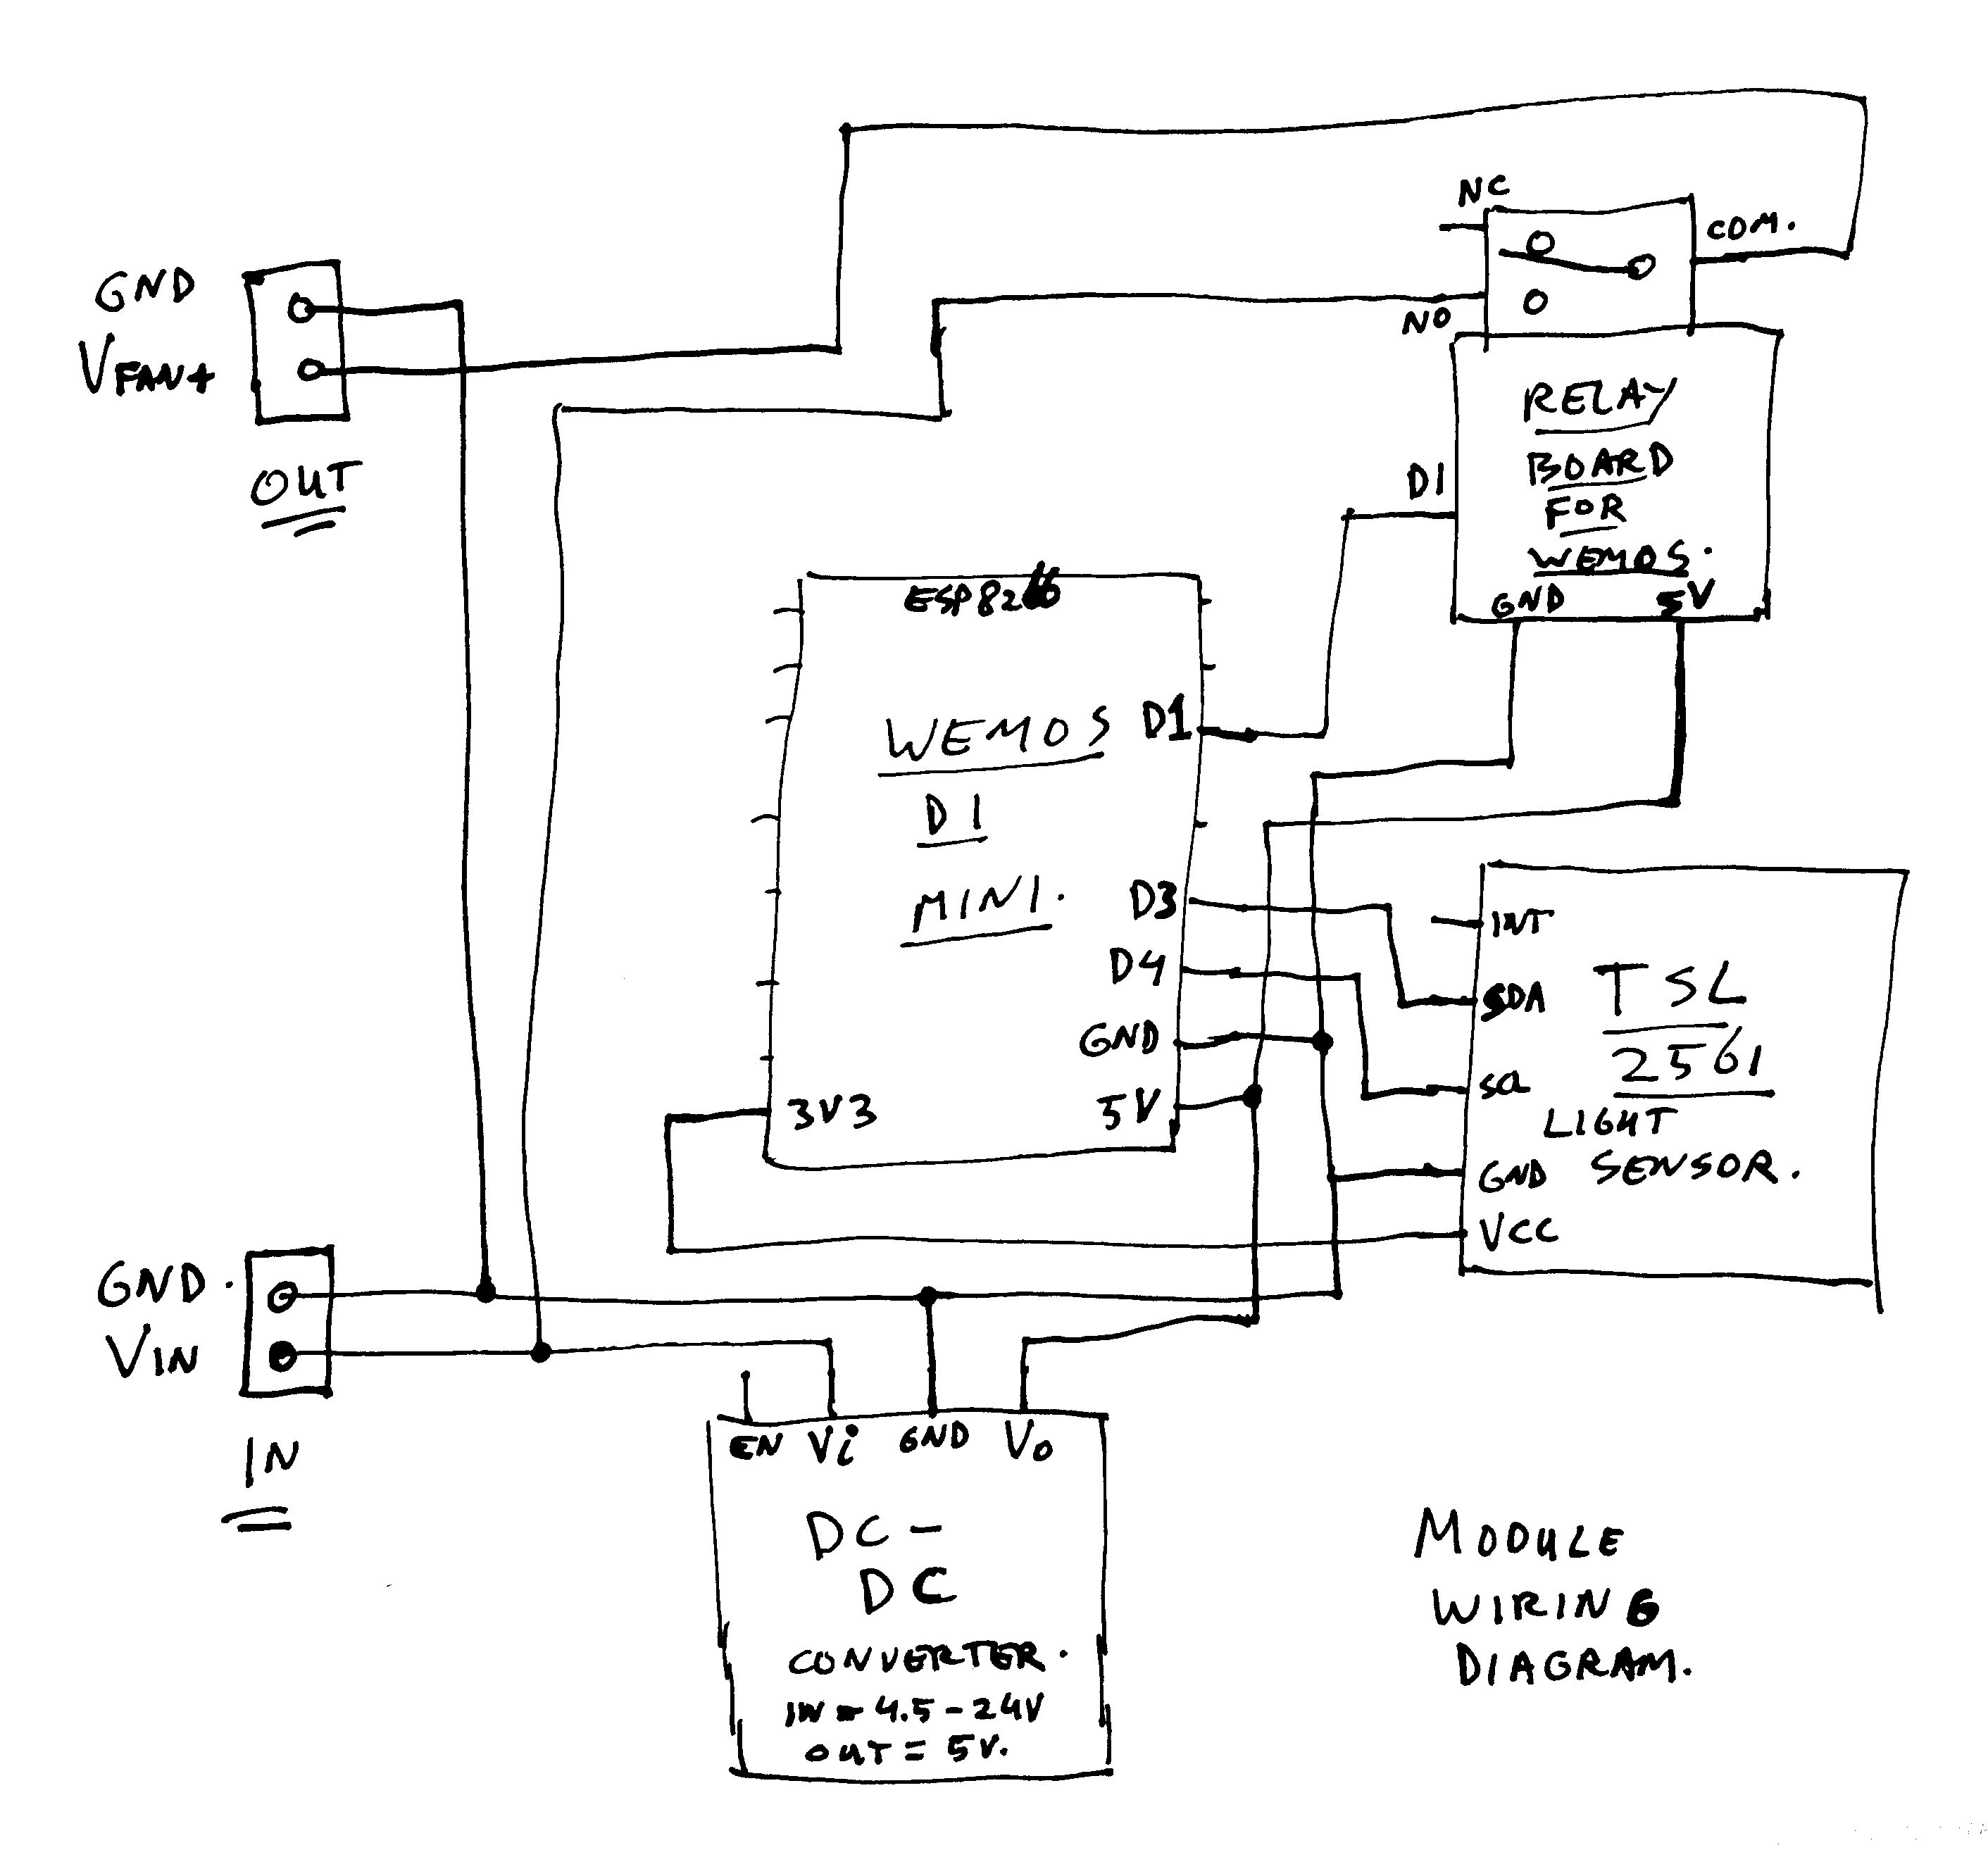 NC
COM.
NO
GND
VFAN+
OUT
RELAY
BOARD
FOR
WEMOS.
D1
GND 5V
ESP8266
WEMOS
D1
MINI.
D1
D3
D4
GND
5V
3V3
INT
SDA
SCL
GND
VCC
TSL
2561
LIGHT
SENSOR.
GND.
VIN
IN
EN Vi GND Vo
DC-
DC
CONVERTER.
IN = 4.5-24V
OUT = 5V.
MODULE
WIRING
DIAGRAM.